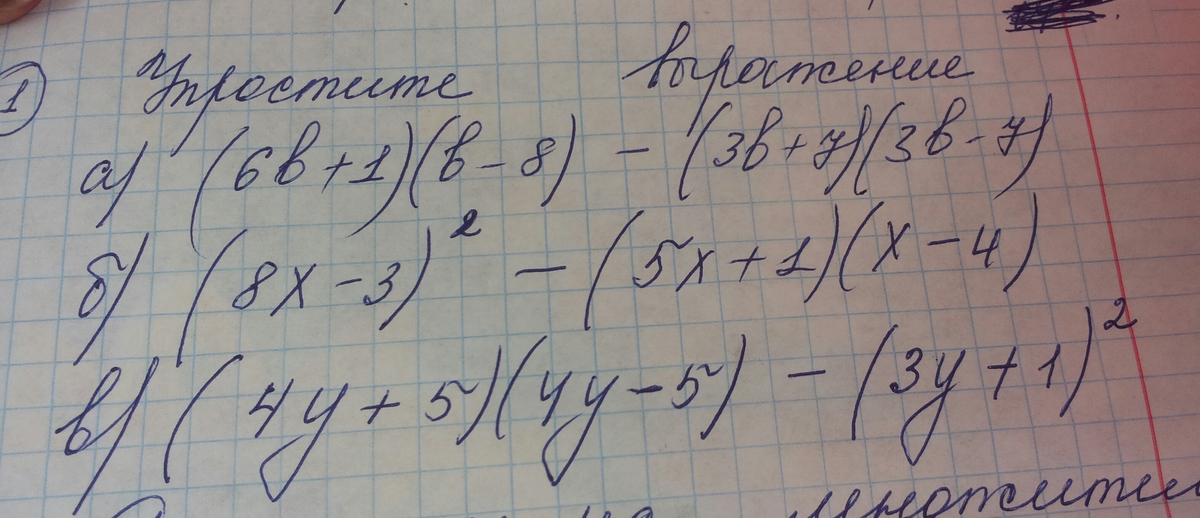 1 Упростите выражение
а) (6b+1)(b-8) - (3b+7)(3b-7)
б) (8x-3)² - (5x+1)(x-4)
в) (4y+5)(4y-5) - (3y+1)²